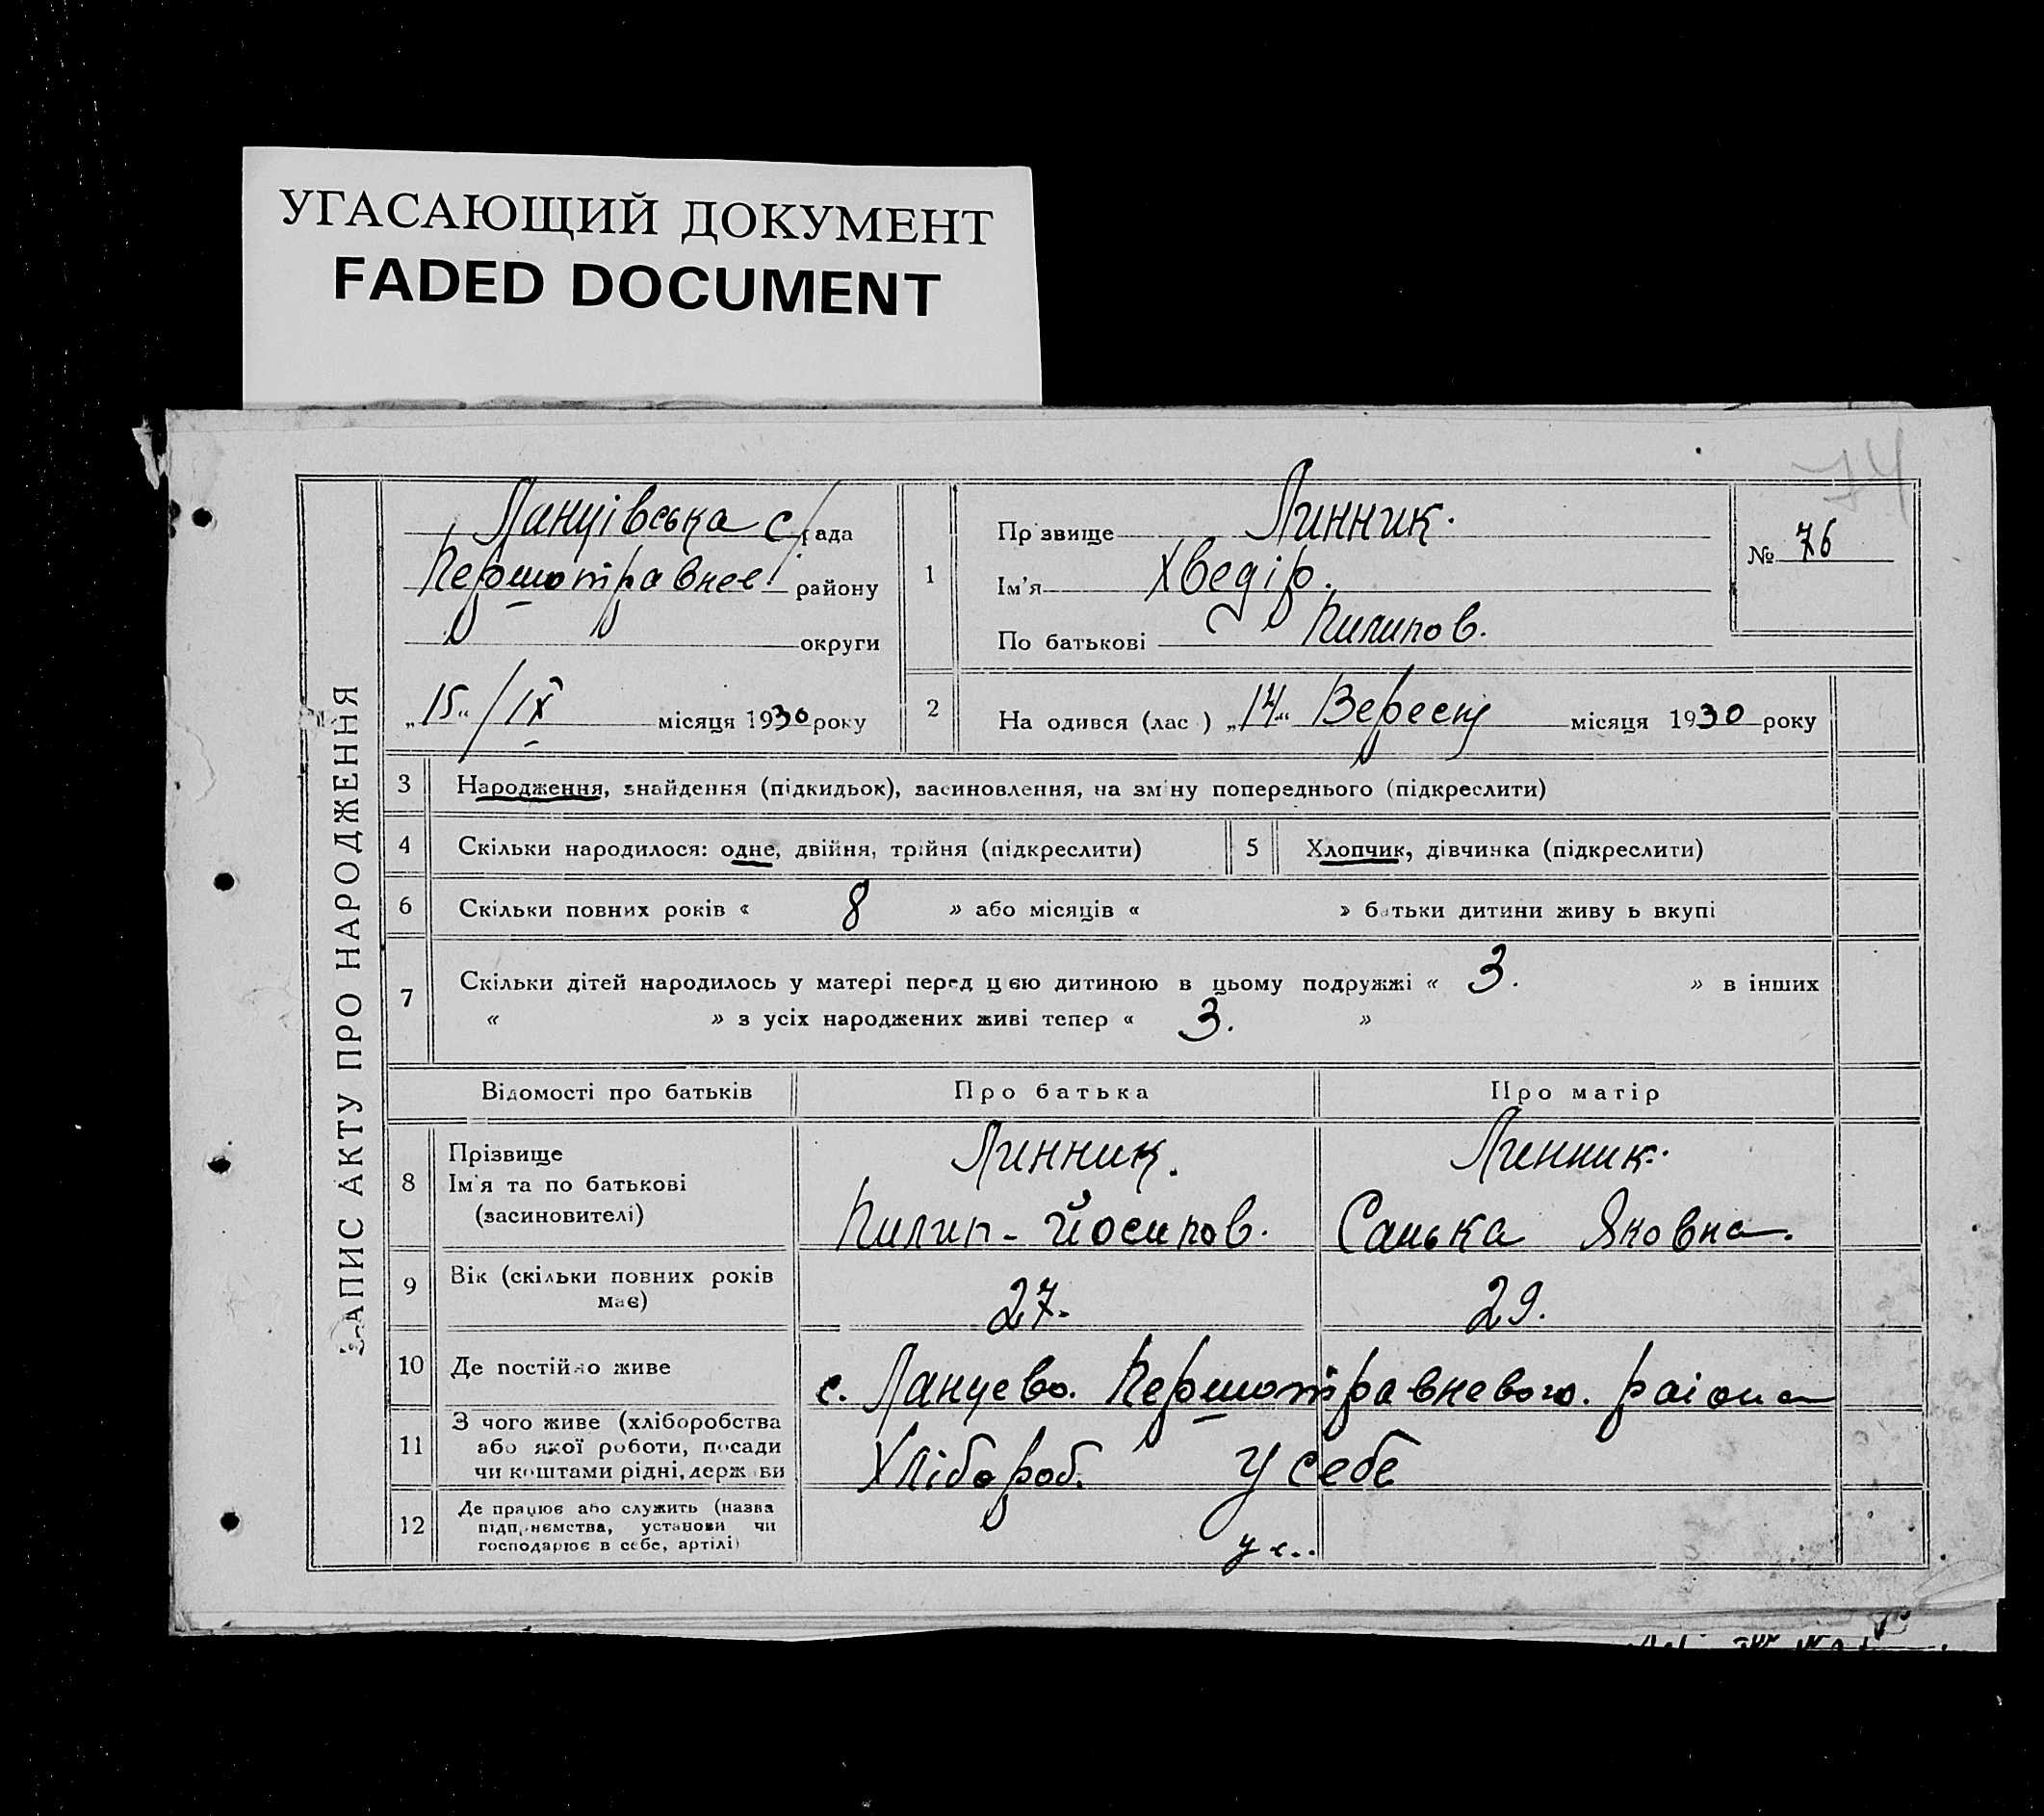 УГАСАЮЩИЙ ДОКУМЕНТ
FADED DOCUMENT
74
ЗАПИС АКТУ ПРО НАРОДЖЕННЯ
ЛанціVська с/рада
Першотравнев. району
округи
„15“ / IX місяця 1930 року
1
Прзвище Линник.
Ім'я Хведір.
По батькові Пилипов.
№ 76
2 На одився (лас ) „14“ Вересня місяця 1930 року
3 Народження, знайдення (підкидьок), засиновлення, на зміну попереднього (підкреслити)
4 Скільки народилося: одне, двійня, трійня (підкреслити) 5 Хлопчик, дівчинка (підкреслити)
6 Скільки повних років « 8 » або місяців « » батьки дитини живу ь вкупі
7 Скільки дітей народилось у матері перед цією дитиною в цьому подружжі « 3. » в інших
« » з усіх народжених живі тепер « 3. »
Відомості про батьків Про батька Про матір
8 Прізвище Линник. Линник.
Ім'я та по батькові
(засиновителі) Пилип - Йосипов. Санька Яковна.
9 Вік (скільки повних років має) 27. 29.
10 Де постійно живе с. Ланцево. Першотравневого. района
11 З чого живе (хліборобства
або якої роботи, посади
чи коштами рідні, держави Хлібороб. У себе
12 Де працює або служить (назва
підприємства, установи чи
господарює в себе, артілі) у с..